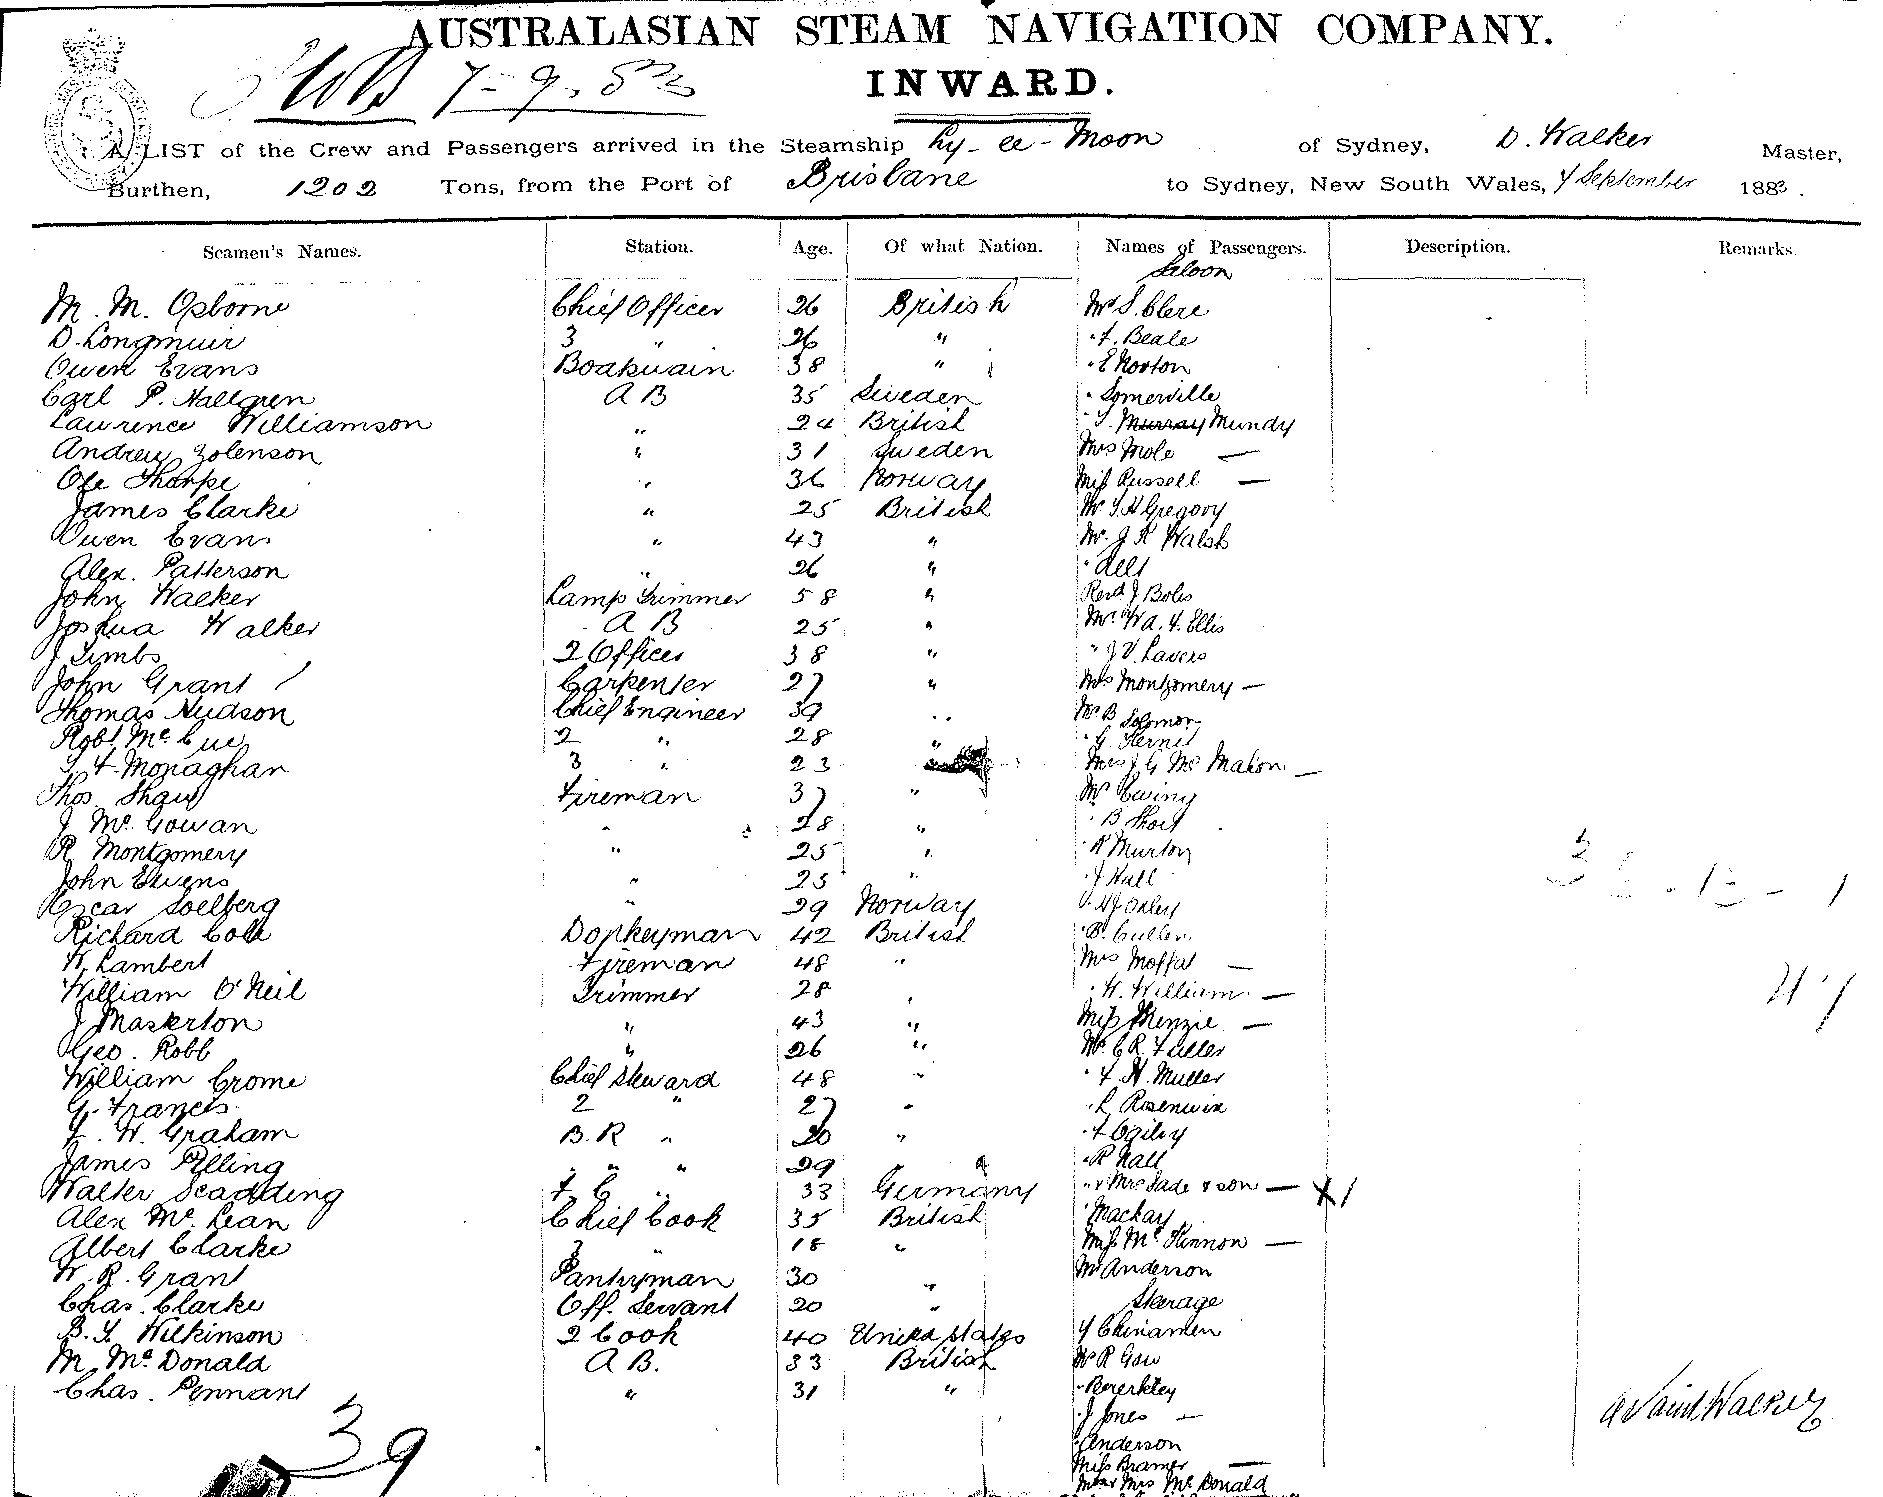 AUSTRALASIAN STEAM NAVIGATION COMPANY.
7-9.83
INWARD.
A LIST of the Crew and Passengers arrived in the Steamship Ly-ee-Moon of Sydney, D. Walker Master,
Burthen, 1202 Tons, from the Port of Brisbane to Sydney, New South Wales, 7 September 1883.
Seamen's Names. Station. Age. Of what Nation. Names of Passengers. Description. Remarks.
Saloon
M. M. Osborne Chief Officer 26 British Mr S. Clere
D. Longmuir 3 " 26 " " F. Beale
Owen Evans Boatswain 38 " " E Norton
Carl P. Hallgren A B 35 Sweden " Somerville
Lawrence Williamson " 24 British " S. Murray Mundy
Andrew Zolenson " 31 Sweden Mrs Mole —
Ole Tharpe " 36 Norway Miss Russell —
James Clarke " 25 British Mr S. H Gregory
Owen Evans " 43 " Mr. J R Walsh
Alex. Patterson " 26 "
John Walker Lamp Trimmer 58 " Revd J Boles
Joshua Walker A B 25 " Mr Wa. F. Ellis
J Timbs 2 Officer 38 " " J V. Lavers
John Grant Carpenter 27 " Mrs Montgomery —
Thomas Hudson Chief Engineer 39 " Mr B Solomon
Robt McCue 2 " 28 " " G.
T. F. Monaghan 3 " 23 " Mrs J G McMahon —
Thos. Shaw Fireman 37 " Mr Ewing
J McGowan " 28 " " B Short
R Montgomery " 25 " " R Murton
John Ewens " 25 " " J Hall
Oscar Soelberg " 29 Norway " H J Oxley
Richard Cole Donkeyman 42 British " B. Cullen
W. Lambert Fireman 48 " Mrs Moffat —
William O'Neil Trimmer 28 " " W. William —
J Maskerton " 43 " Miss Menzie —
Geo. Robb " 26 " Mr. C R. Fuller
William Crome Chief Steward 48 " " F. H. Muller
G. Francis 2 " 27 " " L Rosenwix
J. W. Graham B. R " 20 " " F Ogilvy
James Pilling " " " 29 " " R Hall
Walter Scadding F C " 33 Germany " & Mrs Jade & son — X 1
Alex McLean Chief Cook 35 British " Mackay
Albert Clarke 3 " 18 " Miss McKinnon —
W. R. Grant Pantryman 30 " Mr Anderson
Chas. Clarke Off. Servant 20 " Steerage
B. T. Wilkinson 2 Cook 40 United States 4 Chinamen
M. McDonald A B. 33 British Mr R Gow
Chas. Pennant " 31 " " Bererkley
" J Jones —
39 " Anderson
David Walker
Miss Bramer —
Mrs McDonald